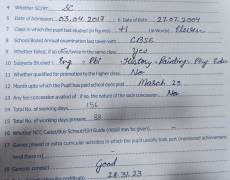 4 Whether SC/ST SC
5 Date of Admission 03.04.2017 6 Date of Birth 27.07.2004
7 Class in which the pupil last studied (in figures) +1 (in Words) Eleven
8 School/Board Annual examination last taken with CBSE
9 Whether failed, if so once/twice in the same class Yes
10 Subjects Studied 1. Eng Pbi History Painting Phy. Edu
11 Whether qualified for promotion to the higher class No
12 Month upto which the Pupil has paid school dues March 23
13 Any fee concession availed of: If so, the nature of such concession No
14 Total No. of working days 156
15 Total No. of working days present 88
16 Whether NCC Cadet/Boy Scout/Girl Guide (detail may be given)
17 Games played or extra curricular activities in which the pupil usually took part (mentioned achievement
18 General conduct Good
28.31.23